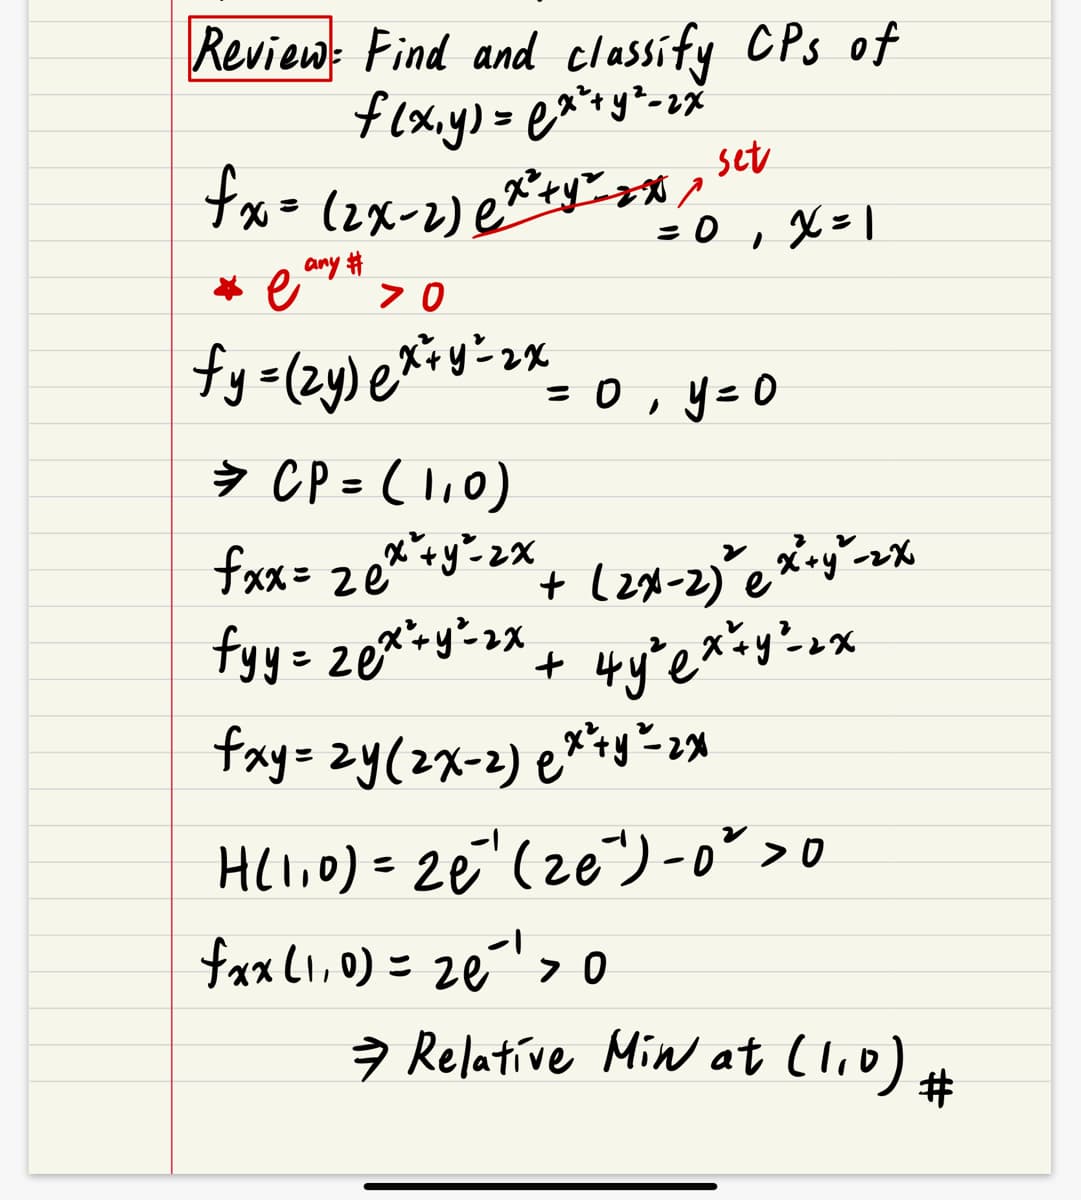 Review: Find and classify CPs of
f(x,y) = e^{x²+y²-2x}
fx = (2x-2) e^{x²+y²-2x} = 0 , x=1
set
* e^{any #} > 0
fy = (2y) e^{x²+y²-2x} = 0 , y=0
⇒ CP = (1,0)
fxx = 2e^{x²+y²-2x} + (2x-2)² e^{x²+y²-2x}
fyy = 2e^{x²+y²-2x} + 4y² e^{x²+y²-2x}
fxy = 2y(2x-2) e^{x²+y²-2x}
H(1,0) = 2e⁻¹(2e⁻¹) - 0² > 0
fxx(1,0) = 2e⁻¹ > 0
⇒ Relative Min at (1,0) #